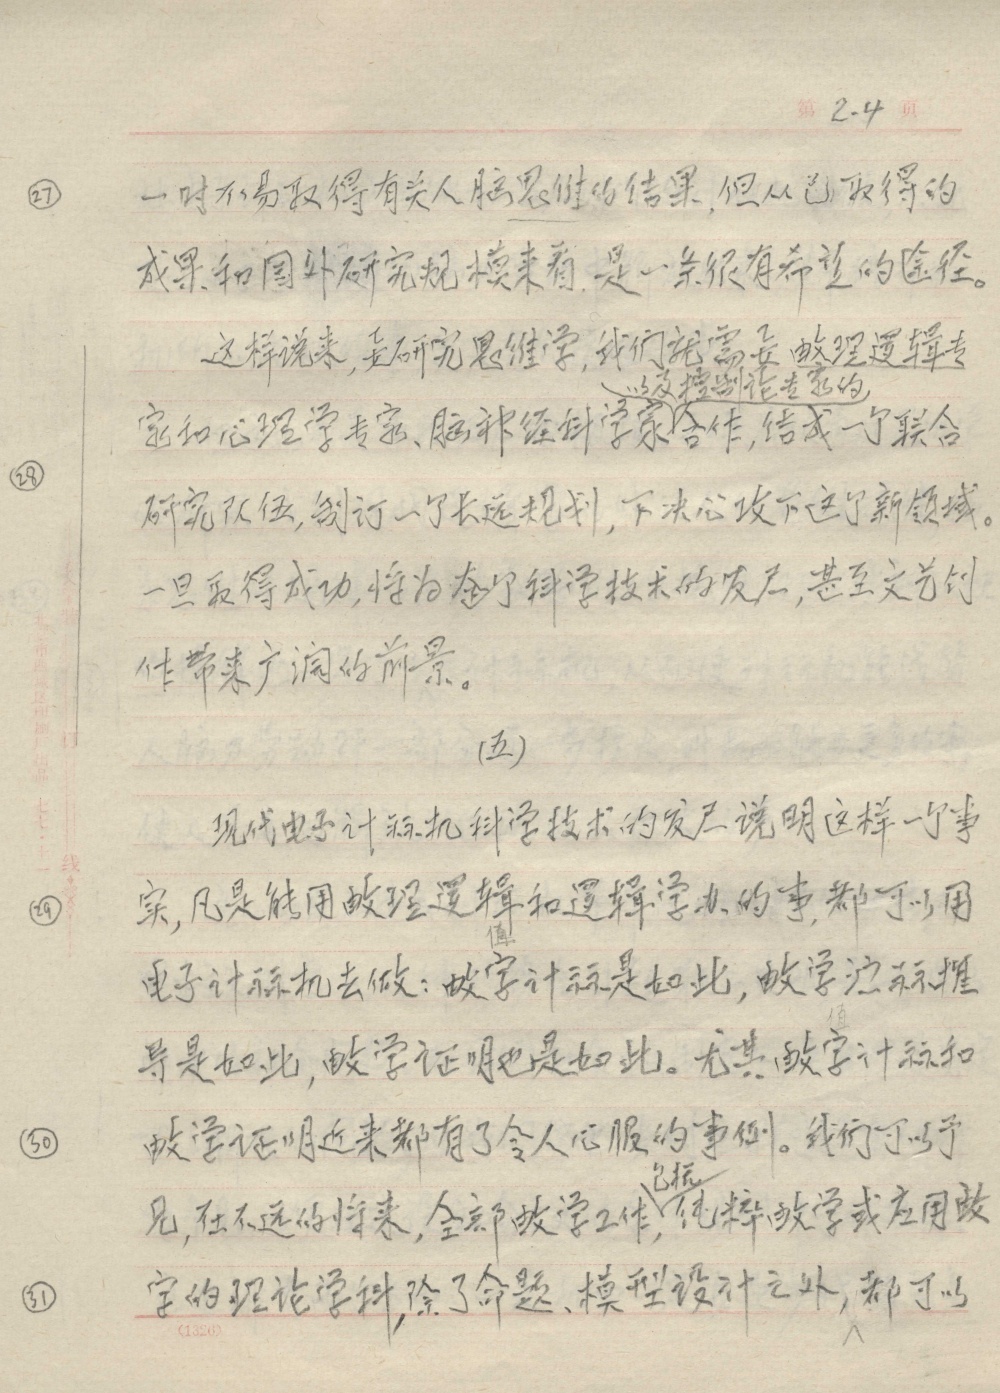 第 2-4 页
㉗ 一时不易取得有关人脑思维的结果,但从已取得的
成果和国外研究规模来看,是一条很有希望的途径。
这样说来,要研究思维学,我们就需要数理逻辑专
以及控制论专家的
家和心理学专家、脑神经科学家合作,结成一个联合
㉘
研究队伍,制订一个长远规划,下决心攻下这个新领域。
一旦取得成功,将为整个科学技术的发展,甚至文艺创
作带来广阔的前景。
(五)
现代电子计祘机科学技术的发展说明这样一个事
㉙ 实,凡是能用数理逻辑和逻辑学办的事,都可以用
值
电子计祘机去做:数字计祘是如此,数学演祘推
值
导是如此,数学证明也是如此。尤其数字计祘和
㉚ 数学证明近来都有了令人心服的事例。我们可以予
包括
见,在不远的将来,全部数学工作,纯粹数学或应用数
㉛ 学的理论学科,除了命题、模型设计之外,都可以
(1326)